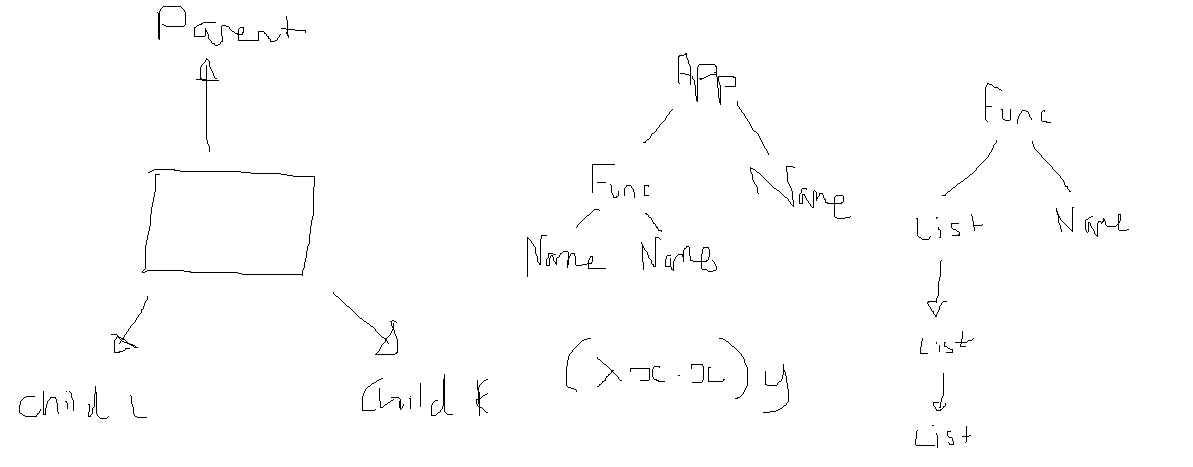 Parent
child L
Child R
App
Func
Name
Name
Name
(λx.x)y
Func
List
Name
List
List